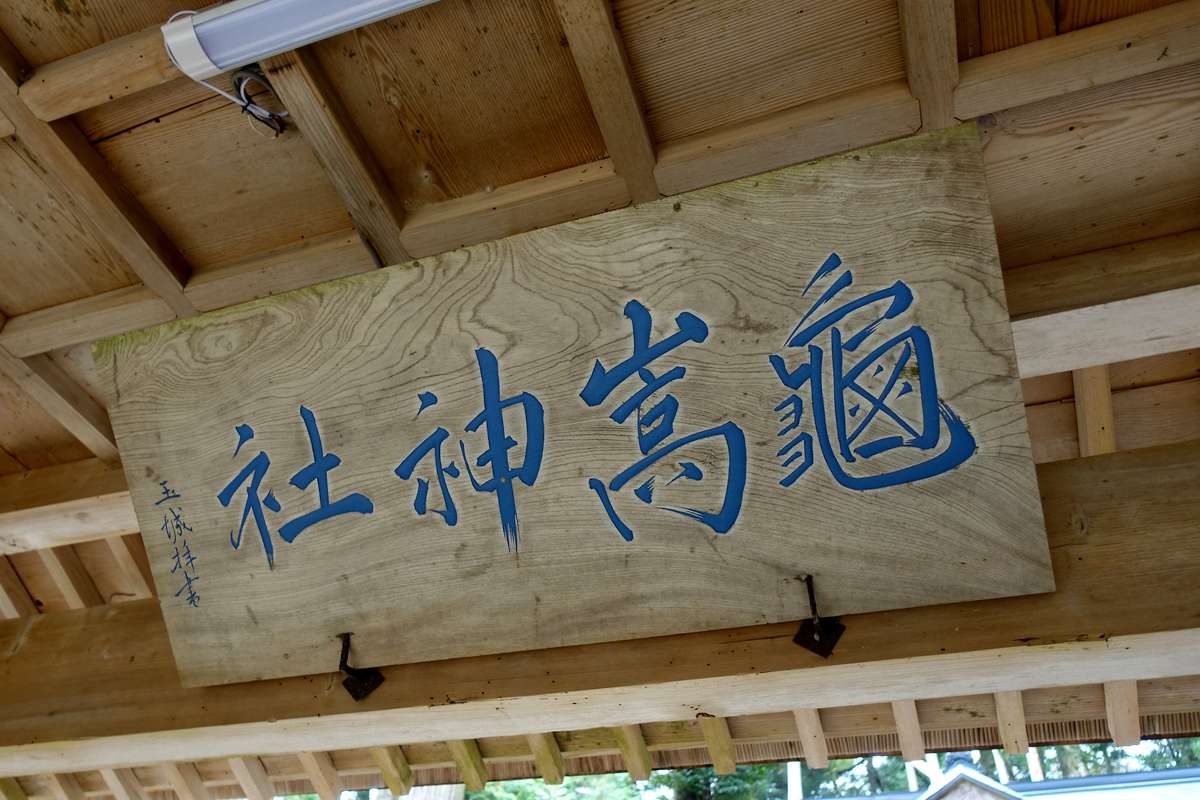 龜嵩神社
玉城拝書